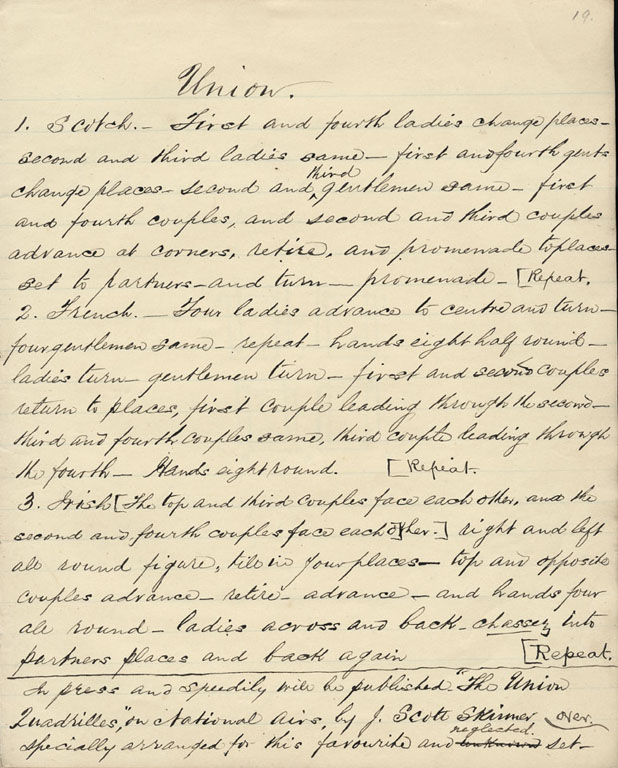 19.
Union.
1. Scotch. — First and fourth ladies change places —
second and third ladies same — first and fourth gents
change places — second and third gentlemen same — first
and fourth couples, and second and third couples
advance at corners, retire, and promenade to places —
set to partners — and turn — promenade — [Repeat.
2. French. — Four ladies advance to centre and turn —
four gentlemen same — repeat — hands eight half round —
ladies turn — gentlemen turn — first and second couples
return to places, first couple leading through the second —
third and fourth couples same, third couple leading through
the fourth — Hands eight round. [Repeat.
3. Irish [The top and third couples face each other, and the
second and fourth couples face each other.] right and left
all round figure, till in your places — top and opposite
couples advance — retire — advance — and hands four
all round — ladies across and back — chassez into
partners places and back again [Repeat.
In press and speedily will be published "The Union
Quadrilles," on National airs, by J. Scott Skinner, over.
specially arranged for this favourite and unknown neglected set —